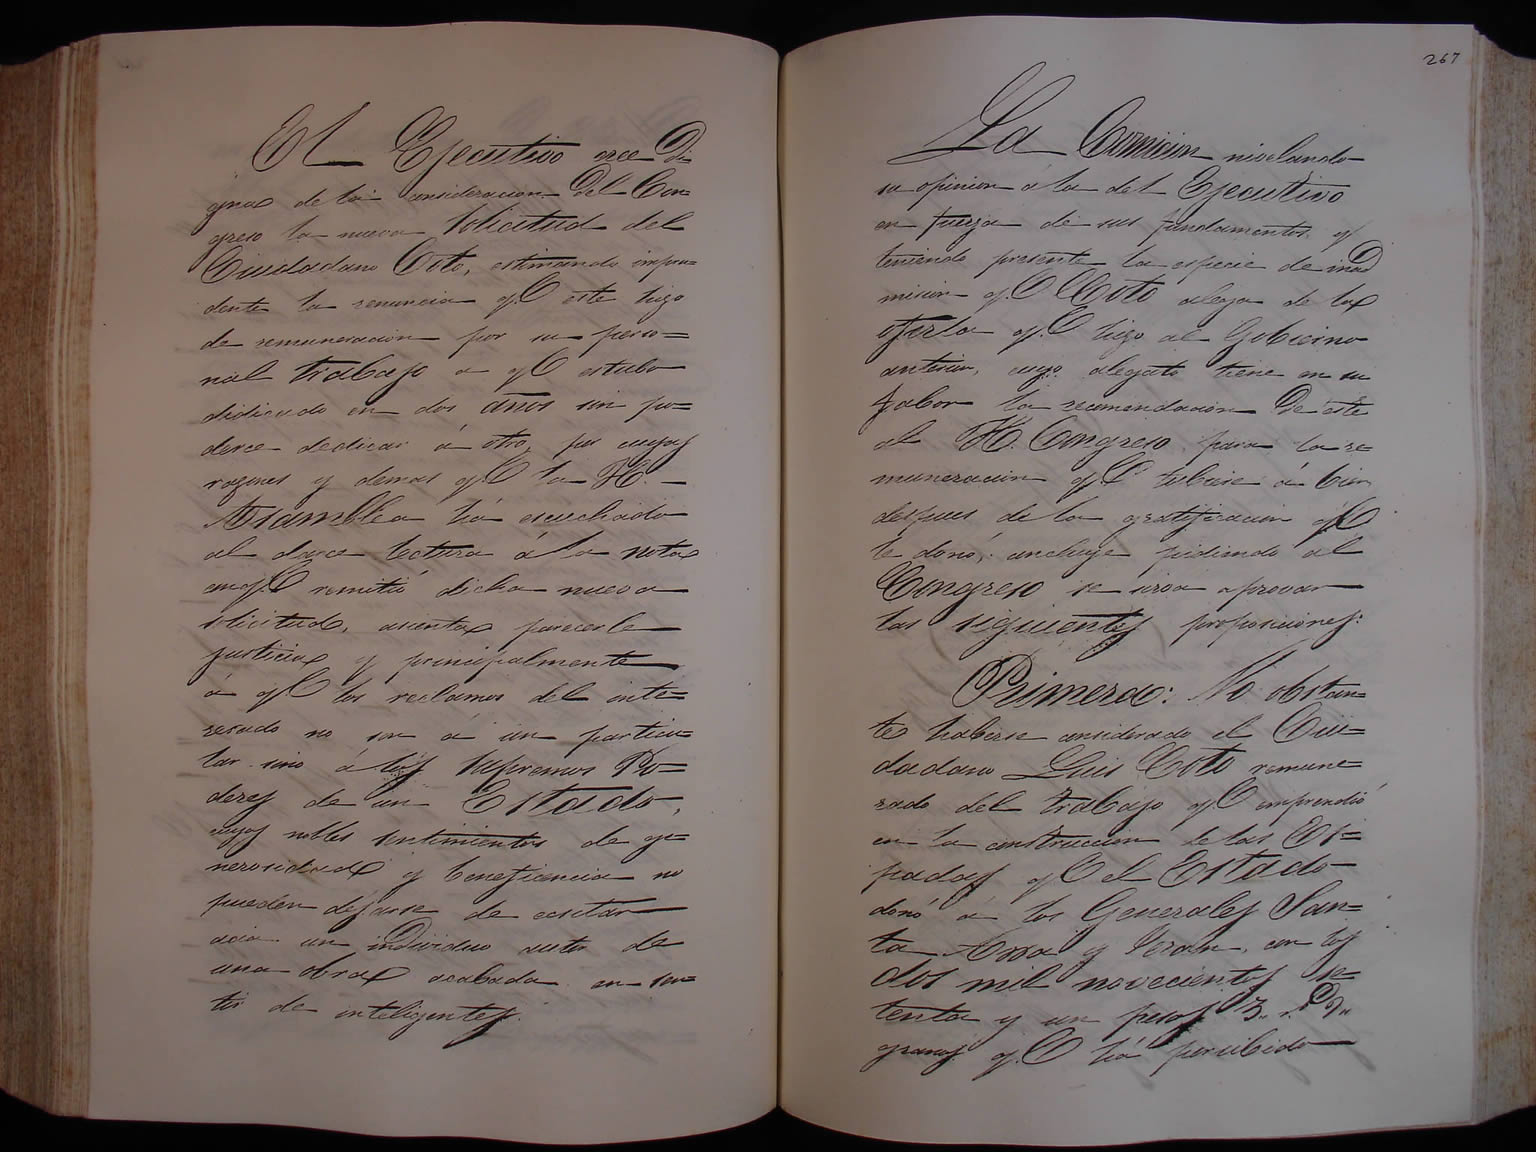 El Ejecutivo cree di=
gna de la consideracion del Con=
greso la nueva solicitud del
Ciudadano Coto, estimando impru=
dente la renuncia q.e este hizo
de remuneracion por su perso=
nal trabajo a q.e estubo
didicado en dos años sin po=
derce dedicar á otro, por cuyas
razones y demas q.e la H.
Asamblea há escuchado
al darce lectura á la nota
en q.e remitió dicha nueva
solicitud, asienta parecerle
justicia y principalmente
á q.e los reclamos del inte=
resado no son á un particu=
lar sino á los supremos Po=
deres de un Estado,
cuyos nobles sentimientos de ge=
nerosidad y beneficencia no
pueden dejarse de ecsitar
acia un individuo autor de
una obra acabada en sen=
tir de inteligentes.
267
La Comicion nivelando
su opinion á la del Ejecutivo
en fuerza de sus fundamentos y
teniendo presente la especie de inad
micion q.e Coto alega de la
oferta q.e hizo al Gobierno
anterior, cuyo alegato tiene en su
fabor la recomendacion de este
al H. Congreso para la re
muneracion q.e tubiese á bien
despues de la gratificacion q.e
le donó, concluye pidiendo al
Congreso se sirva aprovar
las siguientes proposiciones:
Primera: No obstan=
te haberse considerado el Ciu=
dadano Luis Coto remune=
rado del trabajo q.e emprendió
en la construccion de las Es=
padas q.e el Estado
donó á los Generales San=
ta Anna y Teran, con los
dos mil novecientos se=
tenta y un pesos 3,, r.s 9,,
granos q.e há percibido